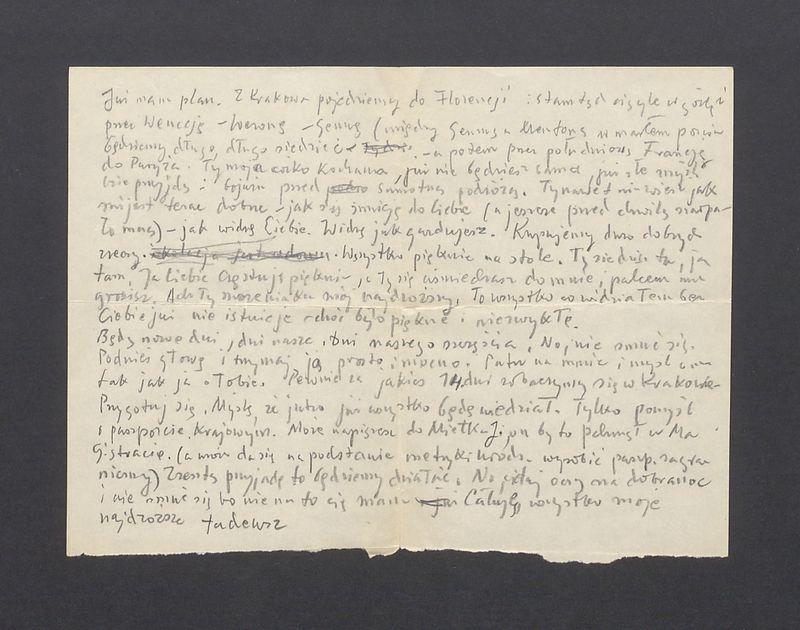 Już mam plan. Z Krakowa pojedziemy do Florencji i stamtąd
przez Wenecję – Weronę – Genuę (między Genuą a Mentoną w małym porcie
będziemy długo, długo siedzieć – a potem przez południową Francję
do Paryża. Ty moja Kochana, już nie będziesz sama, już złe myśli
nie przyjdą i bojaźń przed samotną podróżą. Ty nawet nie wiesz jak
mi jest teraz dobrze – jak się śmieję do Ciebie (a jeszcze przed chwilą
mną) – jak widzę Ciebie. Widzę jak gardujesz. Kupujemy dwo dobrych
rzeczy. Wszystko pięknie na stole. Ty siedzisz tu, ja
tam, Ja Ciebie częstuję pięknie, a Ty się uśmiechasz do mnie, palcem mi
grozisz. Ach Ty mój najdroższy. To wszystko co widziałem bez
Ciebie już nie istnieje choć było piękne i niezwykłe.
Będą nowe dni, dni nasze, dni naszego szczęścia. No, nie smuć się.
Podnieś głowę i trzymaj ją prosto i mocno. Patrz na mnie i myśl
tak jak ja o Tobie. Pewnie za jakieś 14 dni zobaczymy się w Krakowie
Przygotuj się. Myślę, że jutro już wszystko będę wiedział. Tylko pomyśl
o paszporcie Krajowym. Może napiszesz do Mietka J; on by to pchnął w Ma
gistracie. (a może da się na podstawie metryki urodz. wyrobić paszp. zagra
niczny) Zresztą przyjadę to będziemy działać. No, oczy na dobranoc
i nie smuć się bo nie ma to się mam Całuję, wszystko moje
najdroższe Tadeusz